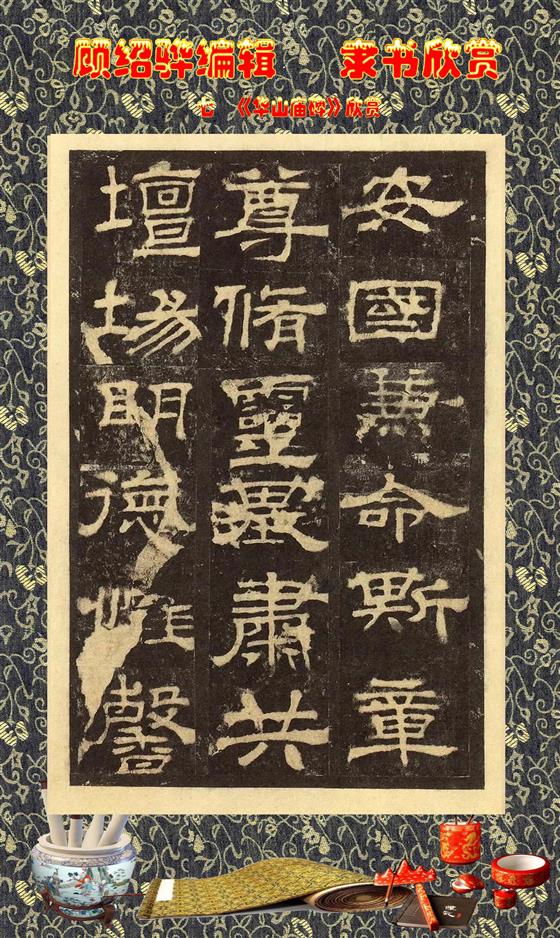 顾绍骅编辑 隶书欣赏
《华山庙碑》欣赏
安國兼命斯章
尊脩靈基肅共
壇場明德惟馨